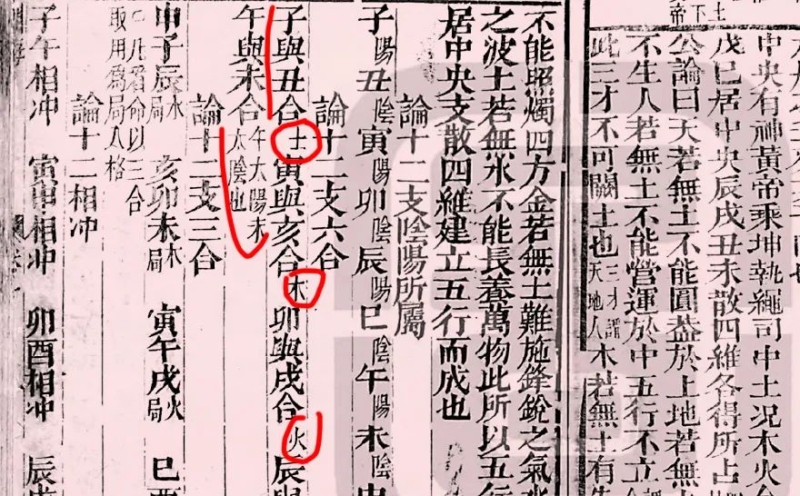 中央有神黃帝乘坤執繩司中土况木火金
戊巳居中央辰戌丑未散四維各得所占
公論曰天若無土不能圓葢於上地若無土
不生人若無土不能營運於中五行不立
此三才不可闕土也三才謂天地人木若無土有失
不能照燭四方金若無土難施鋒銳之氣水
之波土若無水不能長養萬物此所以五行
居中央支散四維建立五行而成也
論十二支陰陽所屬
子陽丑陰寅陽卯陰辰陽巳陰午陽未陰申
論十二支六合
子與丑合土寅與亥合木卯與戌合火辰與
午與未合午太陽未太陰也
論十二支三合
申子辰水局亥卯未木局寅午戌火局巳酉
取用爲局入格
論十二相冲
子午相冲寅申相冲卯酉相冲辰戌